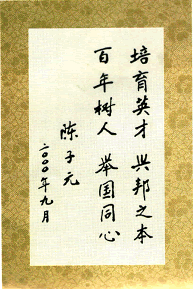 培育英才 兴邦之本
百年树人 举国同心
陈子元
二〇〇〇年九月